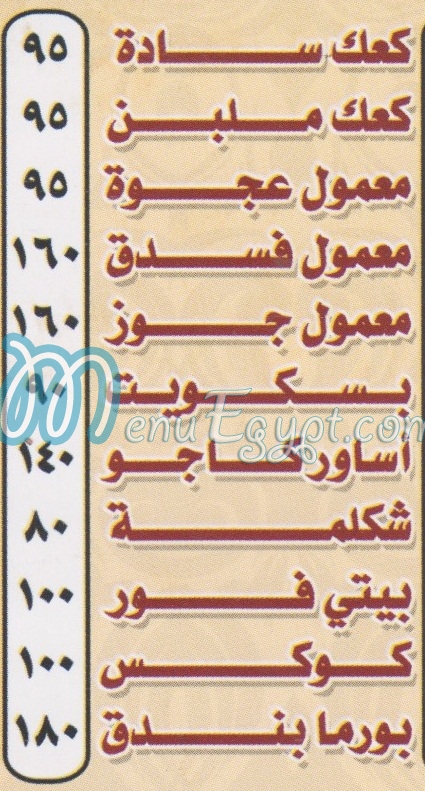 كعك سادة ٩٥
كعك ملبن ٩٥
معمول عجوة ٩٥
معمول فسدق ١٦٠
معمول جوز ١٦٠
بسكويت ٩٠
MenuEgypt.com
أساور كاجو ١٤٠
شكلمة ٨٠
بيتي فور ١٠٠
كوكس ١٠٠
بورما بندق ١٨٠